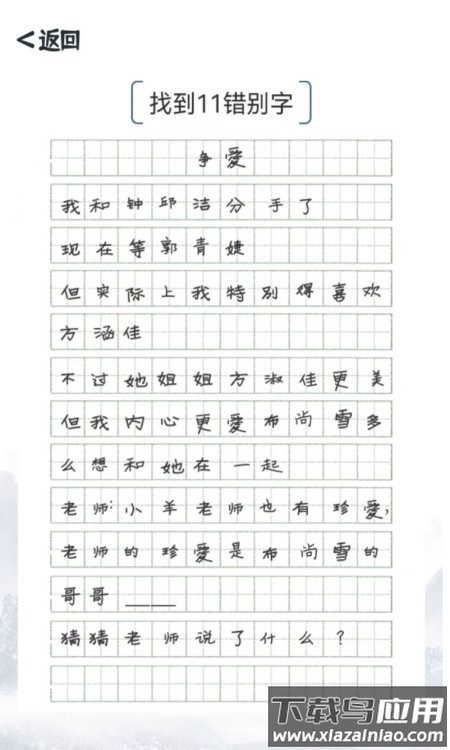 <返回
找到11错别字
争爱
我和钟邱洁分手了
现在等郭青婕
但实际上我特别得喜欢
方涵佳
不过她姐姐方淑佳更美
但我内心更爱布尚雪多
么想和她在一起
老师:小羊老师也有珍爱,
老师的珍爱是布尚雪的
哥哥____
猜猜老师说了什么?
下载鸟应用
www.xlazainlao.com